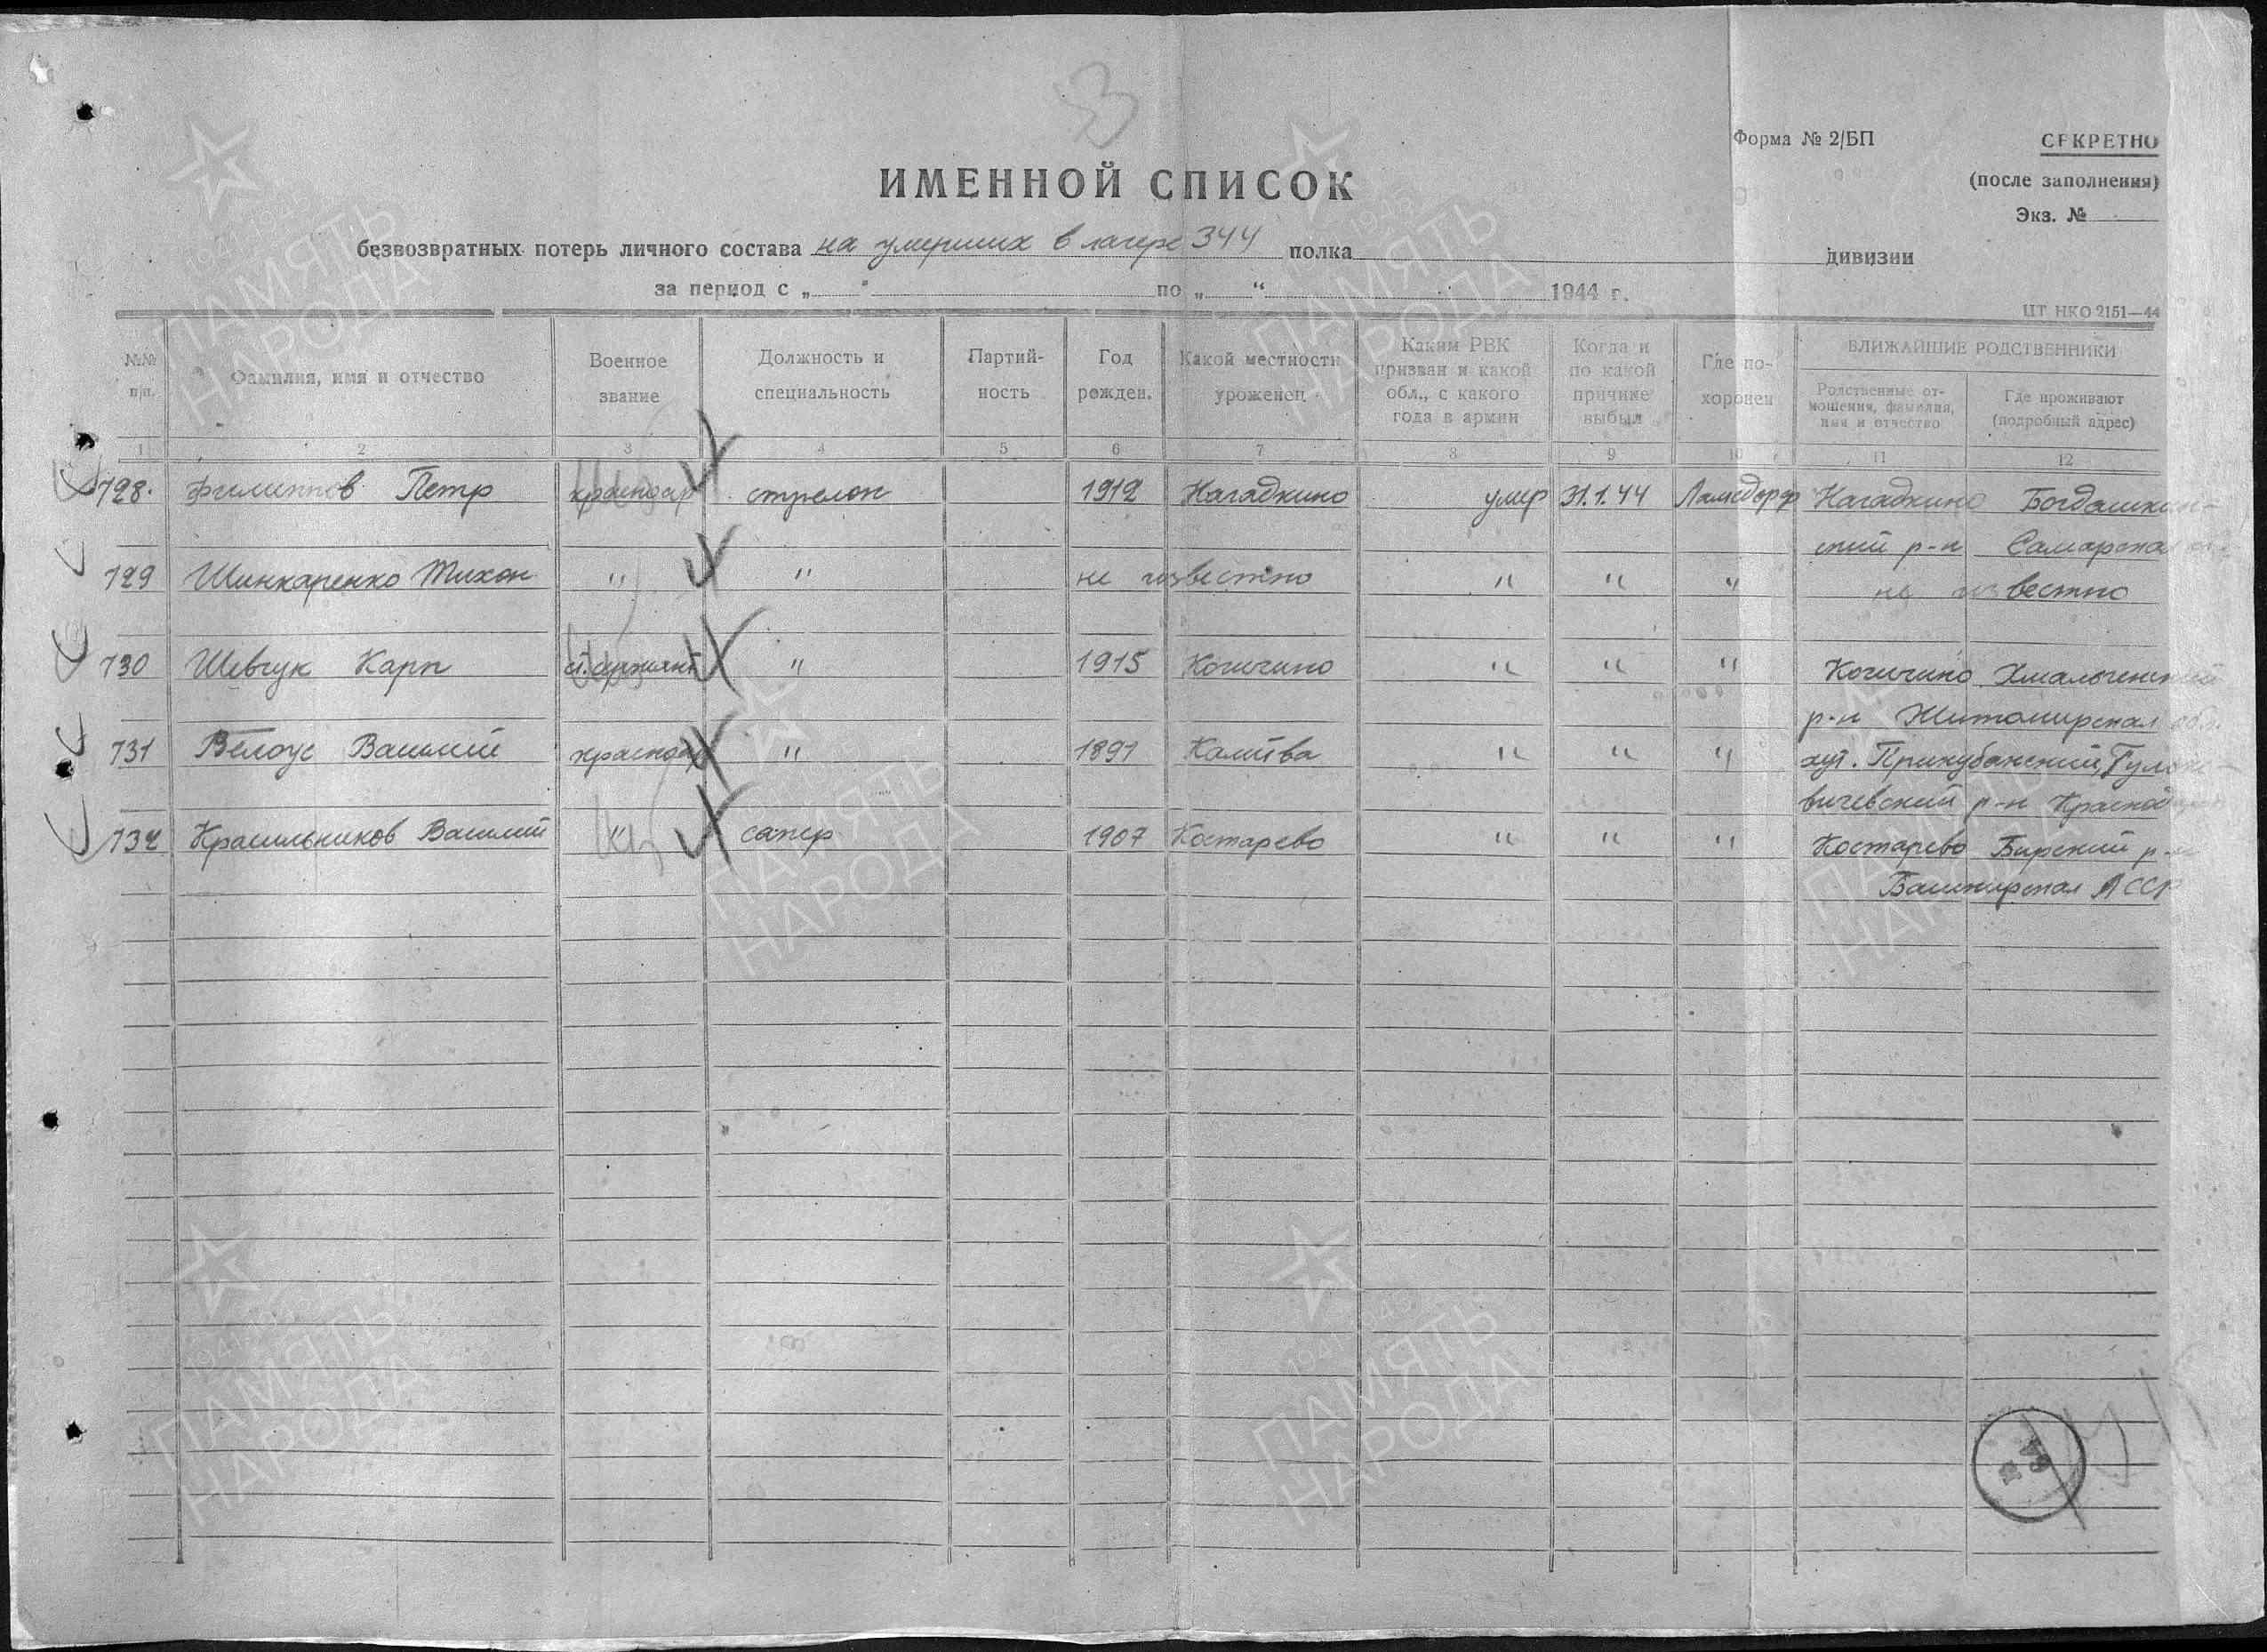 Форма № 2/БП
СЕКРЕТНО
(после заполнения)
Экз. №
ИМЕННОЙ СПИСОК
безвозвратных потерь личного состава на умерших в лагере 344 полка дивизии
за период с „ “ по „ “ 1944 г.
ЦТ НКО 2151—44
№№ п/п. Фамилия, имя и отчество Военное звание Должность и специальность Партийность Год рожден. Какой местности уроженец Каким РВК призван и какой обл., с какого года в армии Когда и по какой причине выбыл Где похоронен БЛИЖАЙШИЕ РОДСТВЕННИКИ
Родственные отношения, фамилия, имя и отчество Где проживают (подробный адрес)
1 2 3 4 5 6 7 8 9 10 11 12
728. Филиппов Петр красноар стрелок 1912 Нагадкино умер 31.1.44 Ламсдорф Нагадкино Богдашкин-
ский р-н Самарская
729 Шинкаренко Тихон " " не известно " " " не известно
730 Шевчук Карп ст. сержант " 1915 Кочичино " " " Кочичино Эмильченский
р-н Житомирская обл.
731 Белоус Василий красноар " 1891 " " " хут. Прикубанский,
вичевский р-н Краснод
732 Красильников Василий " сапер 1907 Костарево " " " Костарево Бирский р-н
Башкирская АССР
ПАМЯТЬ
НАРОДА